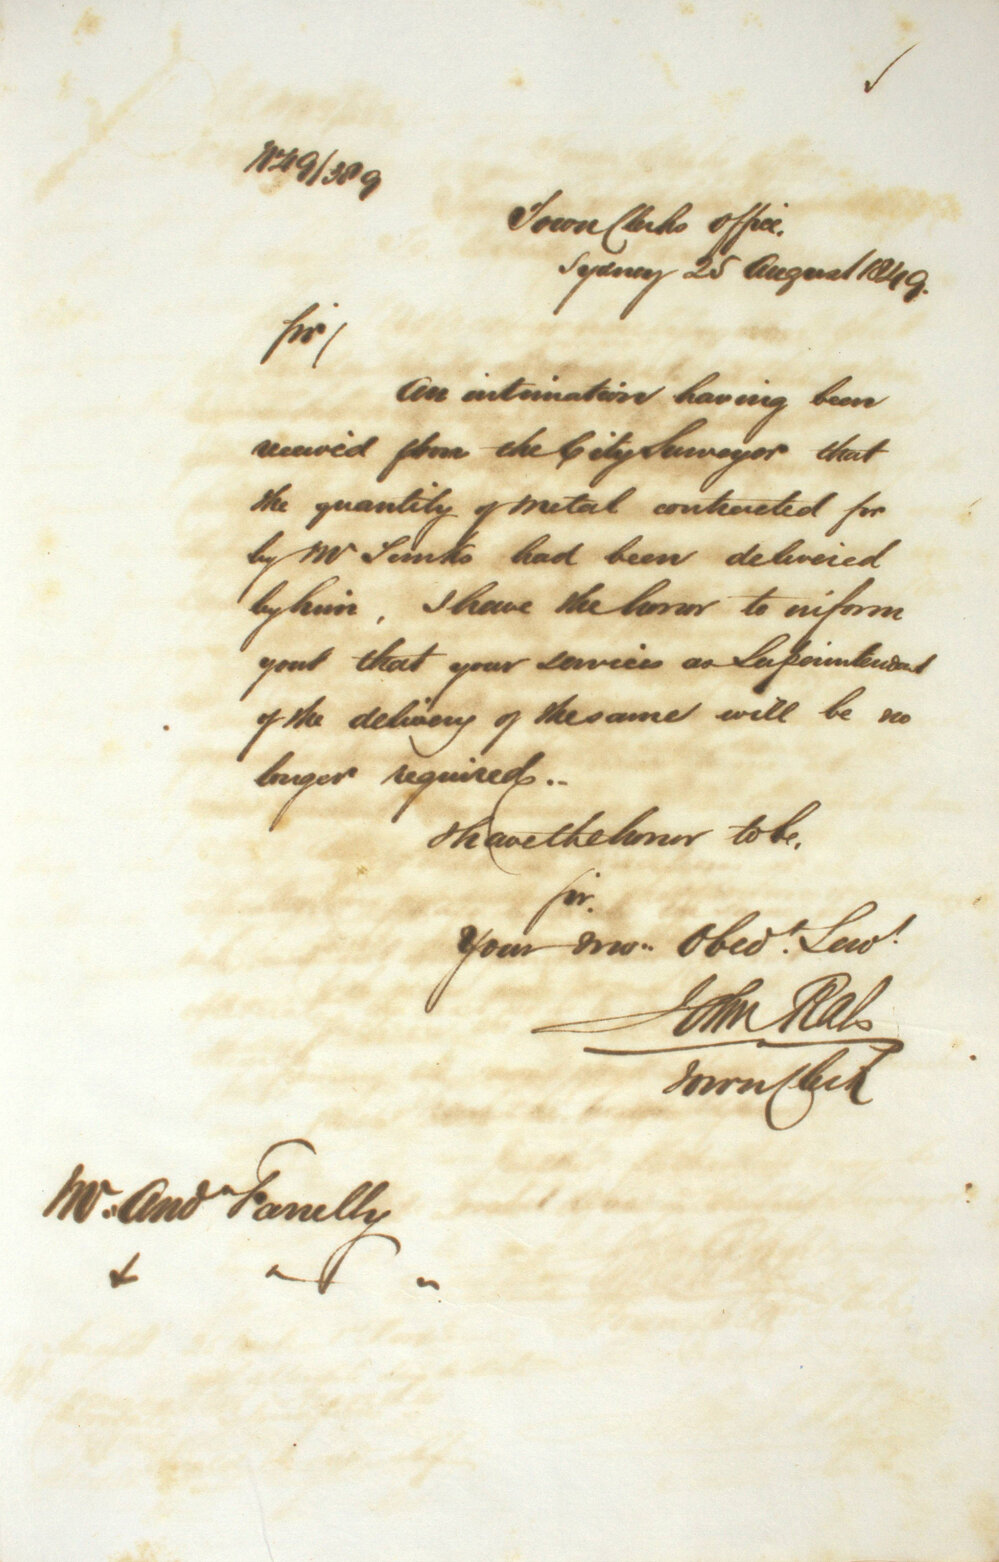 No 49/389
Town Clerks Office.
Sydney 25 August 1849.
Sir/
An intimation having been
received from the City Surveyor that
the quantity of metal contracted for
by Mr had been delivered
by him, I have the honor to inform
you that your services as Superintendent
of the delivery of the same will be no
longer required..
I have the honor to be,
Sir.
Your mo.. Obedt. Servt.
John Rae
Town Clerk
Mr. Andw Farrelly